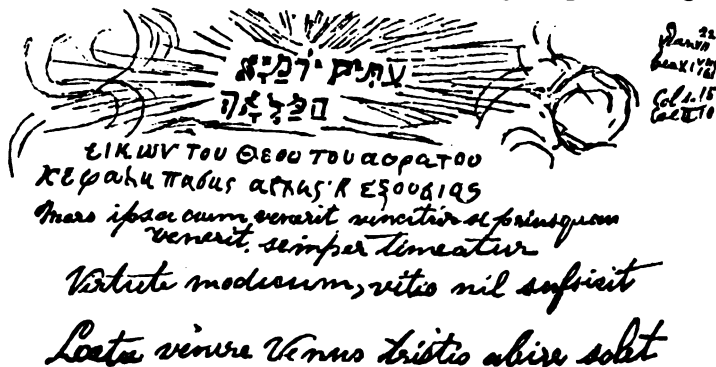 עתיק יומיא
Dan VII 22
Col 1. 15
Col II 10
εικων του Θεου του αορατου
κεφαλη πασης αρχης κ εξουσιας
Mors ipsa cum venerit vincitur si priusquam
venerit, semper timeatur
Virtute modicum, vitio nil sufficit
Laeta venire Venus tristis abire solet